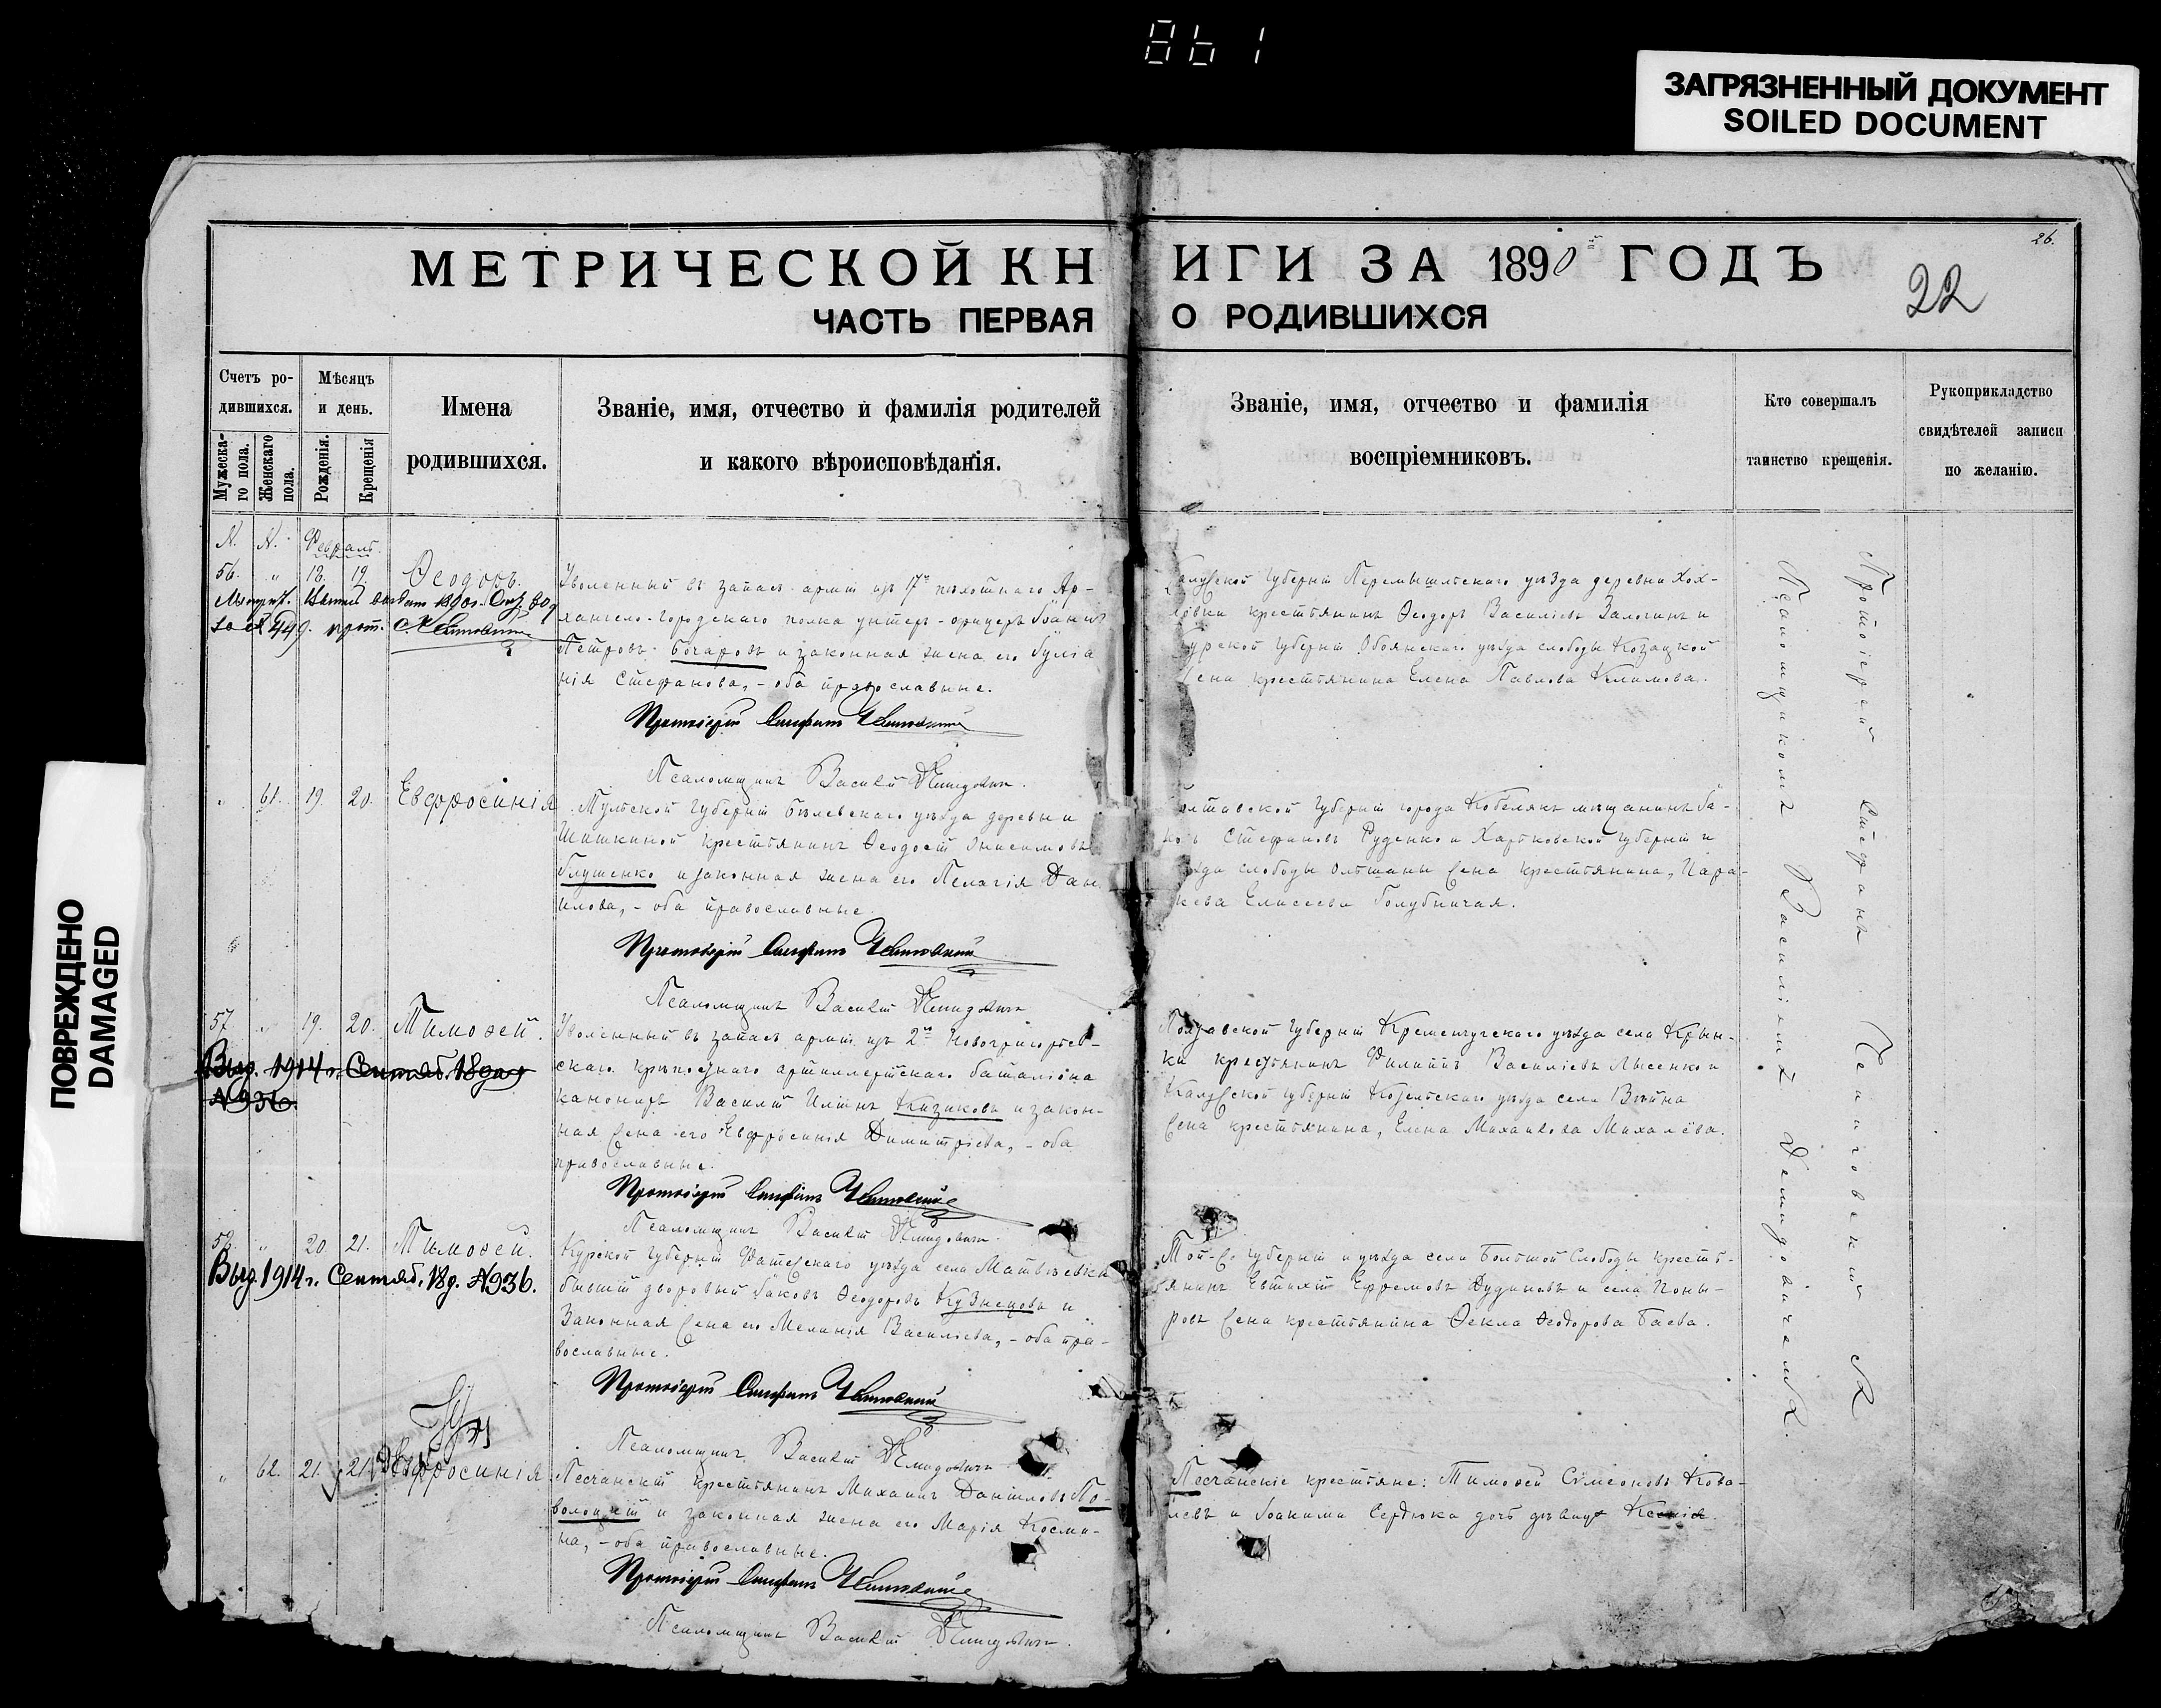 861
ЗАГРЯЗНЕННЫЙ ДОКУМЕНТ
SOILED DOCUMENT
ПОВРЕЖДЕНО
DAMAGED
26.
МЕТРИЧЕСКОЙ КНИГИ ЗА 1890й ГОДЪ
22
ЧАСТЬ ПЕРВАЯ О РОДИВШИХСЯ
Счетъ ро-
дившихся.
Мужеска-
го пола.
Женскаго
пола.
Мѣсяцъ
и день.
Рожденія.
Крещенія
Имена
родившихся.
Званіе, имя, отчество и фамилія родителей
и какого вѣроисповѣданія.
Званіе, имя, отчество и фамилія
воспріемниковъ.
Кто совершалъ
таинство крещенія.
Рукоприкладство
свидѣтелей записи
по желанію.
N. N. Февраль.
56. " 18. 19. Ѳеодоръ.
за № 449. прот.
Уволенный въ запасъ арміи изъ 17го пѣхотнаго Ар-
хангело-городскаго полка унтеръ-офицеръ Іоаннъ
Петровъ Бочаровъ и законная жена его Іуліа
нія Стефанова, - оба православные.
Протоіерей Стефанъ
Псаломщикъ Василій Демидовичъ.
Калужской губерніи Перемышльскаго уѣзда деревни Хох-
ловки крестьянинъ Ѳеодоръ Василіевъ Залогинъ и
Курской губерніи Обоянскаго уѣзда слободы Козацкой
жена крестьянина Елена Павлова Климова.
" 61. 19. 20. Евфросинія
Тульской губерніи Бѣлевскаго уѣзда деревни
Шишкиной крестьянинъ Ѳеодосій Онисимовъ
Глушенко и законная жена его Пелагія Дан
илова, - оба православные.
Протоіерей Стефанъ
Псаломщикъ Василій Демидовичъ
Полтавской губерніи города Кобелякъ мѣщанинъ Іа-
ковъ Стефановъ Руденко и Харьковской губерніи и
уѣзда слободы Ольшаны жена крестьянина, Пара-
скева Елисеева Голубничая.
57 " 19. 20. Тимоѳей.
Выд. 1914 г. Сентяб. 18 дня
№936.
Уволенный въ запасъ арміи изъ 2го Новогригорьев-
скаго крѣпостнаго артиллерійскаго баталіона
канониръ Василій Ильинъ Казиковъ и закон-
ная жена его Евфросинія Димитріева, - оба
православные.
Протоіерей Стефанъ
Псаломщикъ Василій Демидовичъ.
Полтавской губерніи Кременчугскаго уѣзда села Крын-
ки крестьянинъ Филиппъ Василіевъ Лысенко и
Калужской губерніи Козельскаго уѣзда села Вѣйна
жена крестьянина, Елена Михаилова Михалёва.
58 " 20. 21. Тимоѳей.
Выд. 1914 г. Сентяб. 18 д. №936.
Курской губерніи Фатежскаго уѣзда села Матвѣевки
бывшій дворовый Іаковъ Ѳеодоровъ Кузнецовъ и
законная жена его Меланія Василіева, - оба пра-
вославные.
Протоіерей Стефанъ
Псаломщикъ Василій Демидовичъ
Той-же губерніи и уѣзда села Большой Слободы кресть-
янинъ Евтихій Ефремовъ Дудиновъ и села Поны-
ровъ жена крестьянина Ѳекла Ѳеодорова Баева.
" 62. 21. 21. Евфросинія
Песчанскій крестьянинъ Михаилъ Даніиловъ По-
волоцкій и законная жена его Марія Косми-
на, - оба православные.
Протоіерей Стефанъ
Псаломщикъ Василій Демидовичъ.
Песчанскіе крестьяне: Тимоѳей Сѵмеоновъ Кова-
левъ и Іоакима Сердюка дочь дѣвица Ксенія.
Протоіерей Стефанъ
Псаломщикомъ Василіемъ Демидовичемъ.